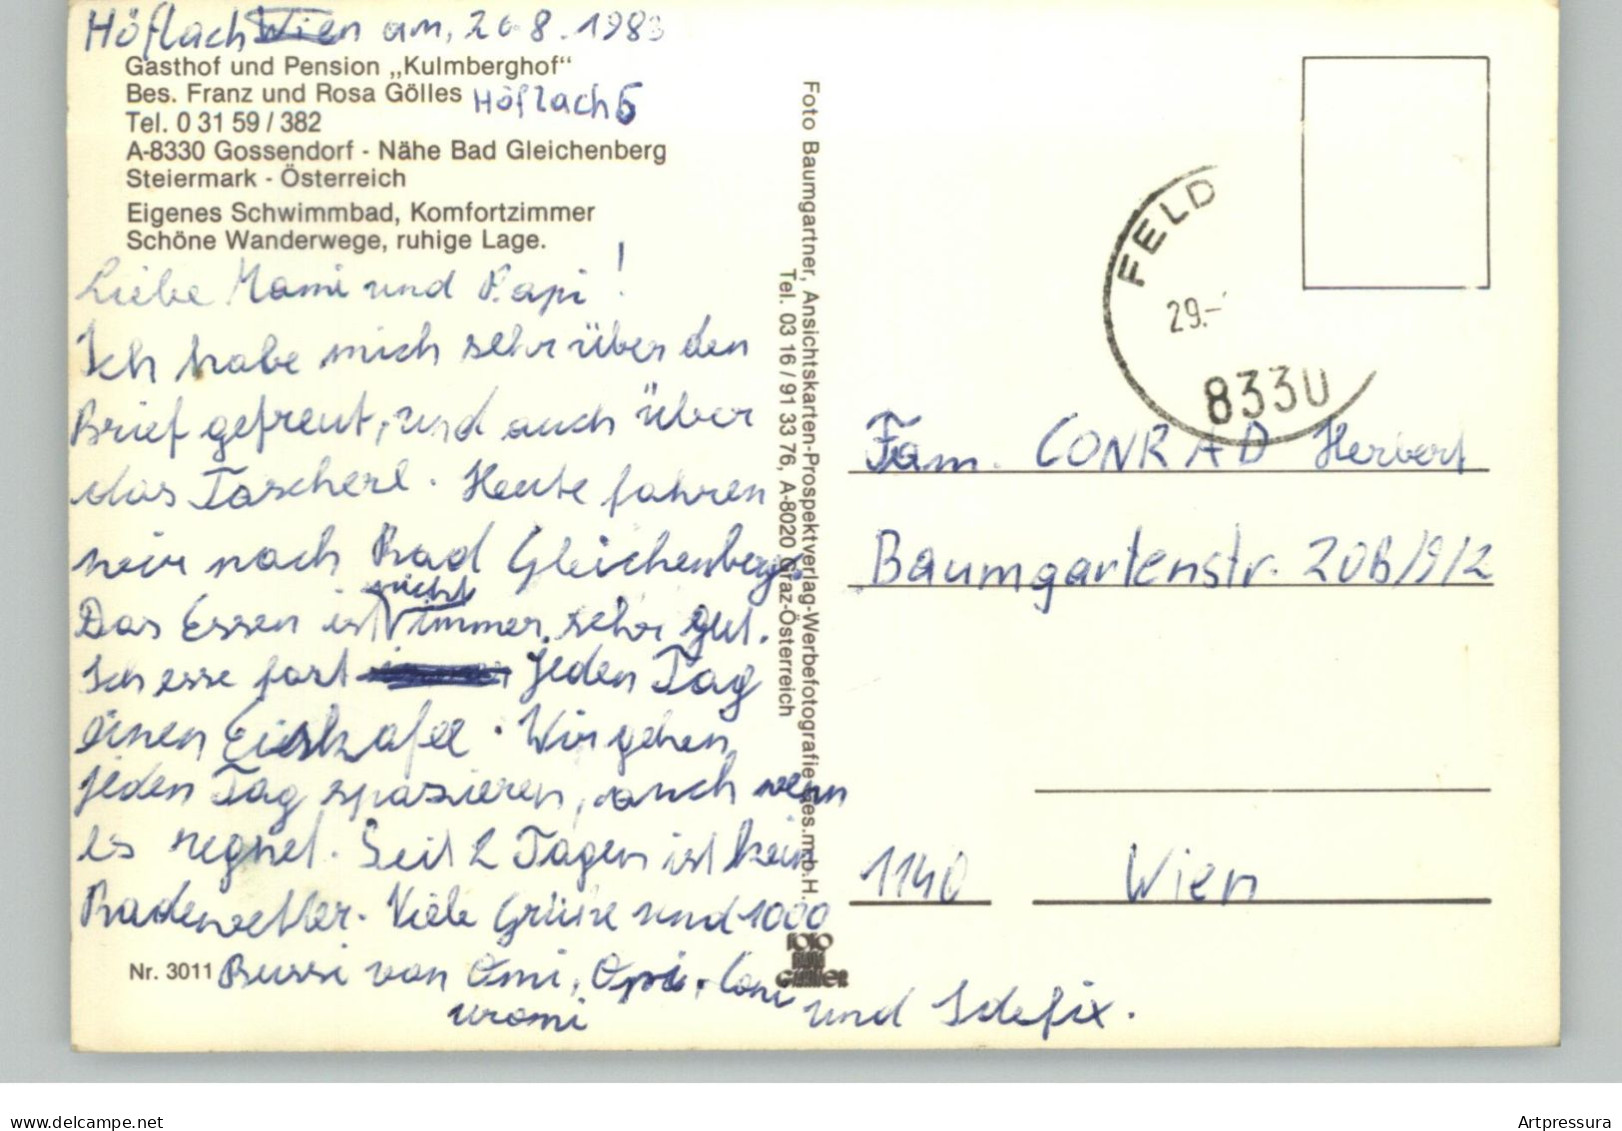 Höflach Wien am, 26.8.1983
Gasthof und Pension „Kulmberghof“
Bes. Franz und Rosa Gölles Höflach 5
Tel. 0 31 59 / 382
A-8330 Gossendorf - Nähe Bad Gleichenberg
Steiermark - Österreich
Eigenes Schwimmbad, Komfortzimmer
Schöne Wanderwege, ruhige Lage.
Liebe Mami und Papi!
Ich habe mich sehr über den
Brief gefreut, und auch über
das Tascherl. Heute fahren
wir nach Bad Gleichenberg.
Das Essen ist nicht immer sehr gut.
Ich esse fast jeden Tag
einen Eiskafee. Wir gehen
jeden Tag spazieren, auch wenn
es regnet. Seit 2 Tagen ist kein
Badewetter. Viele Grüße und 1000
Nr. 3011 Bussi von Omi, Opi, Coni
uromi und Idefix.
Foto Baumgartner, Ansichtskarten-Prospektverlag-Werbefotografie Ges.m.b.H.
Tel. 03 16 / 91 33 76, A-8020 Graz-Österreich
FOTO
BAUM
GARTNER
FELD
29.-
8330
Fam. CONRAD Herbert
Baumgartenstr. 20B/9/2
1140 Wien
delcampe.net
Artpressura